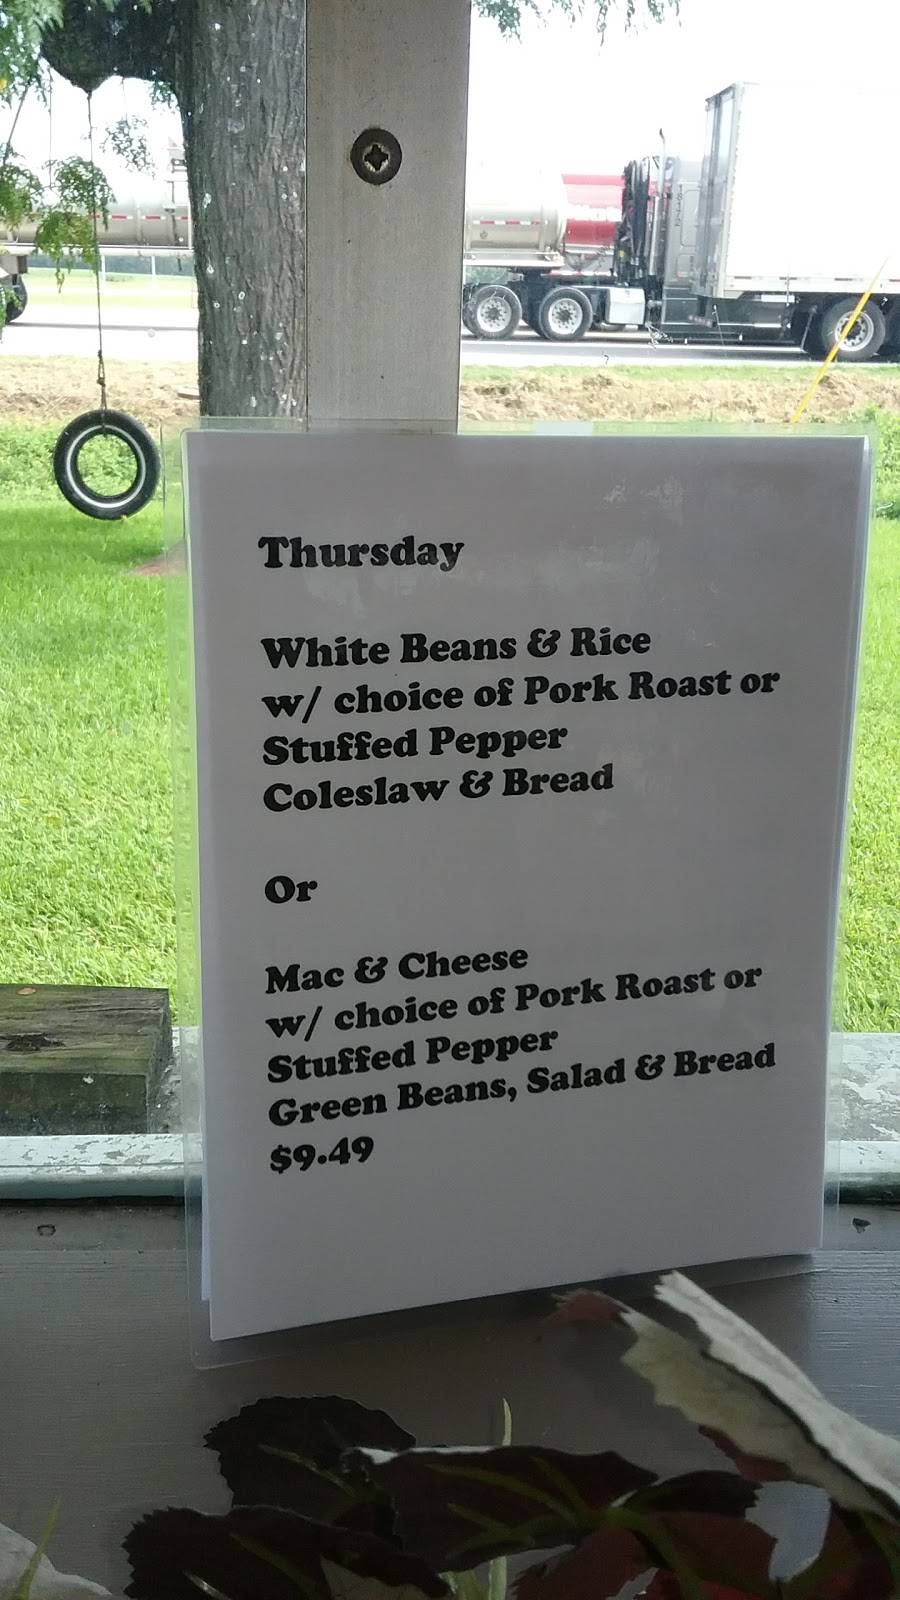 8172
Thursday
White Beans & Rice
w/ choice of Pork Roast or
Stuffed Pepper
Coleslaw & Bread
Or
Mac & Cheese
w/ choice of Pork Roast or
Stuffed Pepper
Green Beans, Salad & Bread
$9.49